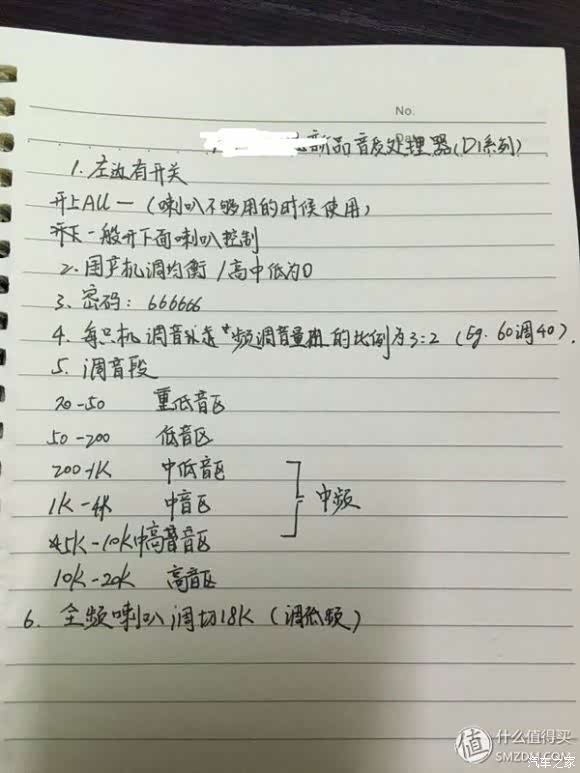 No.
Da
新品音反处理器(D1系列)
1. 左边有开关
开上ALL一(喇叭不够用的时候使用)
开下一般开下面喇叭控制
2. 国产机调均衡/高中低为0
3. 密码:666666
4. 每只机调音 频调音量 的比例为3:2(eg. 60调40).
5. 调音段
20-50 重低音区
50-200 低音区
200-1K 中低音区
1K-4K 中音区
中频
5K-10K 中高音区
10K-20K 高音区
6. 全频喇叭调切18K(调低频)
值 什么值得买
SMZDM.COM
汽车之家